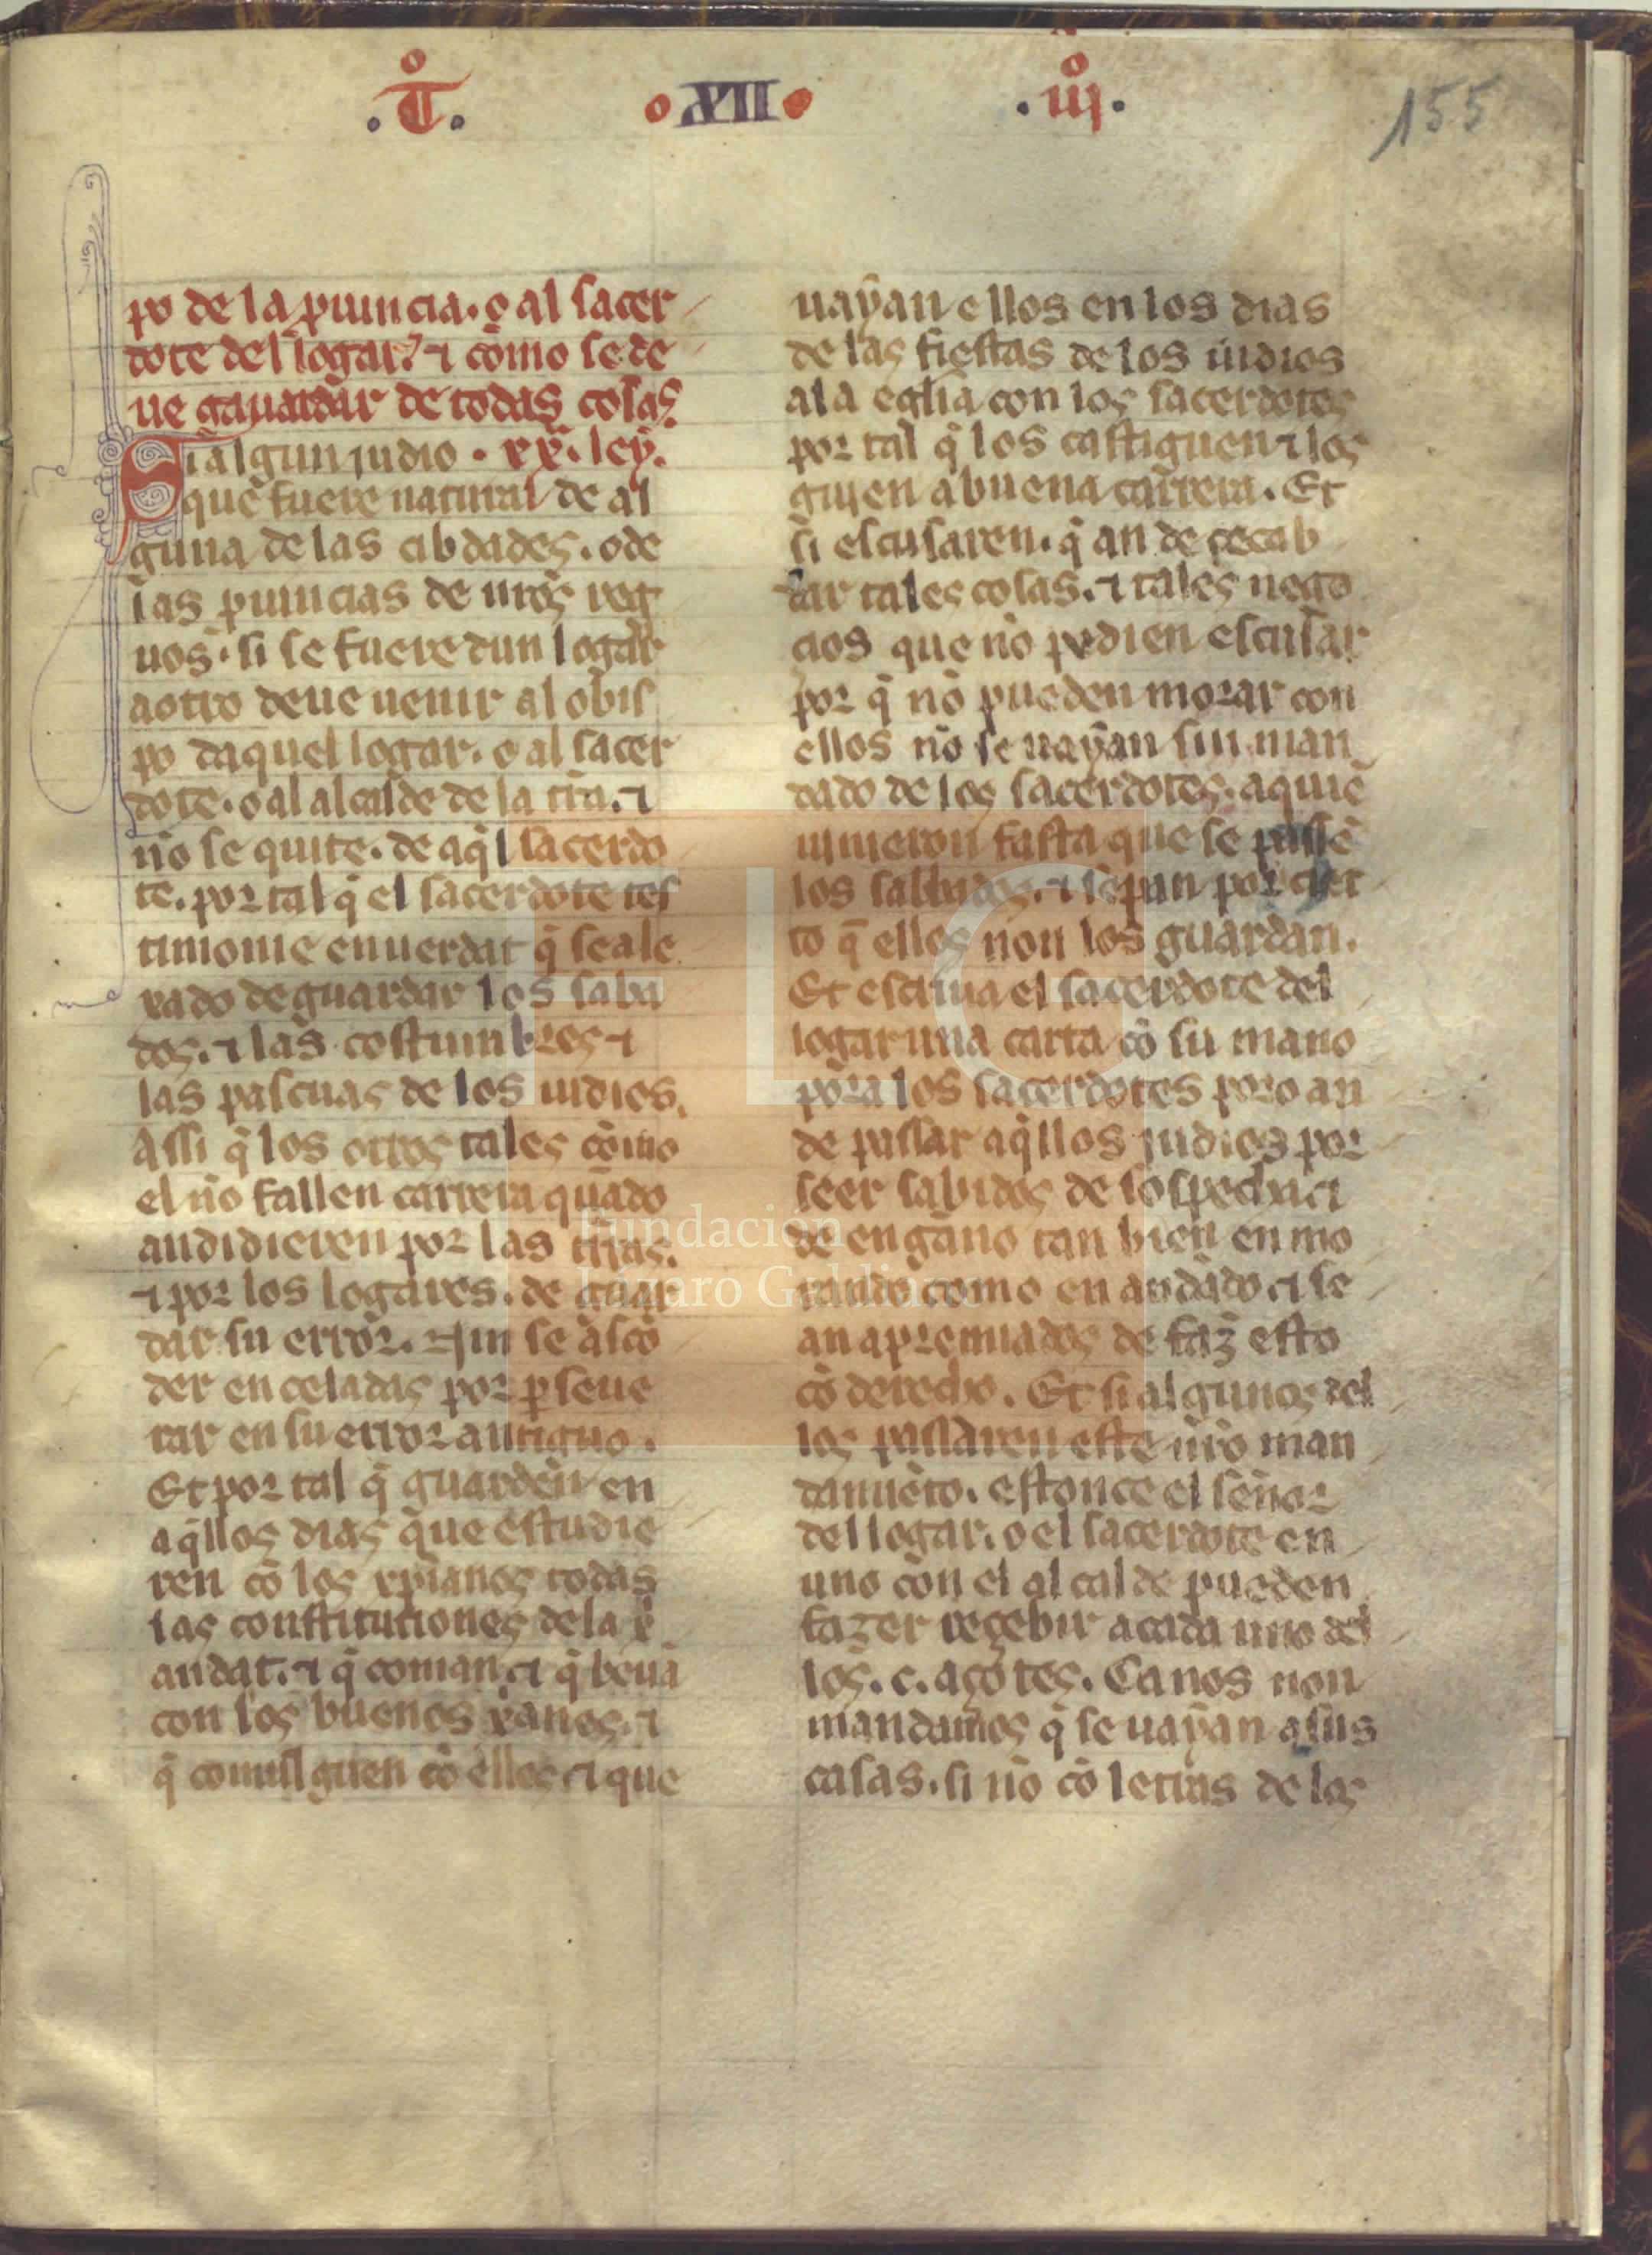 .T̊. •XII• .iiȷ̊.
155
po de la ꝓuincia. o al sacer
dote del logar? ⁊ como se de
ue gauardar de todas cosas.
Si algun judio . xx. ley.
que fuere natural de al
guna de las cibdades. o de
las ꝓuincias de nr̄os reg
nos. si se fuere dun logar
a otro deue uenir al obis
po daquel logar. o al sacer
dote. o al alcalde de la tr̄ra. ⁊
no se quite. de aq̄l sacerdo
te. por tal q̄ el sacerdote tes
timonie en uerdat q̄ se ale
xado de guardar los saba
dos. ⁊ las costumbres ⁊
las pascuas de los iudios.
Assi q̄ los otros tales como
el no fallen carrera quādo
andidieren por las tr̄ras.
⁊ por los logares. de guar
dar su error. Nin se ascō
der en celadas por ꝑseue
rar en su error antiguo.
Et por tal q̄ guarden en
aq̄llos dias que estudie
ren cō los xp̄ianos todas
las constitutiones de la x̄
andat. ⁊ q̄ coman. ⁊ q̄ beuā
con los buenos x̄anos. ⁊
q̄ comulguen cō ellos. ⁊ que
uayan ellos en los dias
de las fiestas de los iudios
a la egl̄ia con los sacerdotes
por tal q̄ los castiguen ⁊ los
guien a buena carrera. Et
si escusaren. q̄ an de recab
dar tales cosas. ⁊ tales nego
cios que no podien escusar
por q̄ no pueden morar con
ellos no se uayan sin man
dado de los sacerdotes. a quiē
uinieron fasta que se passē
los sabbados. ⁊ sepan por cier
to q̄ ellos non los guardan.
Et escriua el sacerdote del
logar una carta cō su mano
pora los sacerdotes poro an
de passar aq̄llos judios por
seer sabidos de sospecha ⁊
de engano tan bien en mo
rando como en andādo. ⁊ se
an apremiados de faz̄ esto
cō derecho. Et si algunos del
los passaren este nr̄o man
damiēto. estonce el señor
del logar. o el sacerdote en
uno con el alcalde pueden
fazer reçebir a cada uno del
los. c. açotes. Ca nos non
mandamos q̄ se uayan a sus
casas. si no cō letras de los
FLG
Fundación
Lázaro Galdiano